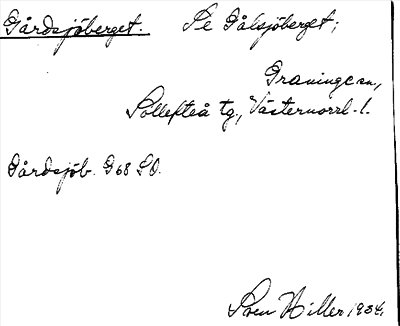 Gårdsjöberget. Se Gålsjöberget;
Graninge sn,
Sollefteå tg., Västernorrl. l.
Gårdsjöb. G68 SO.
Sven Hiller 1934.